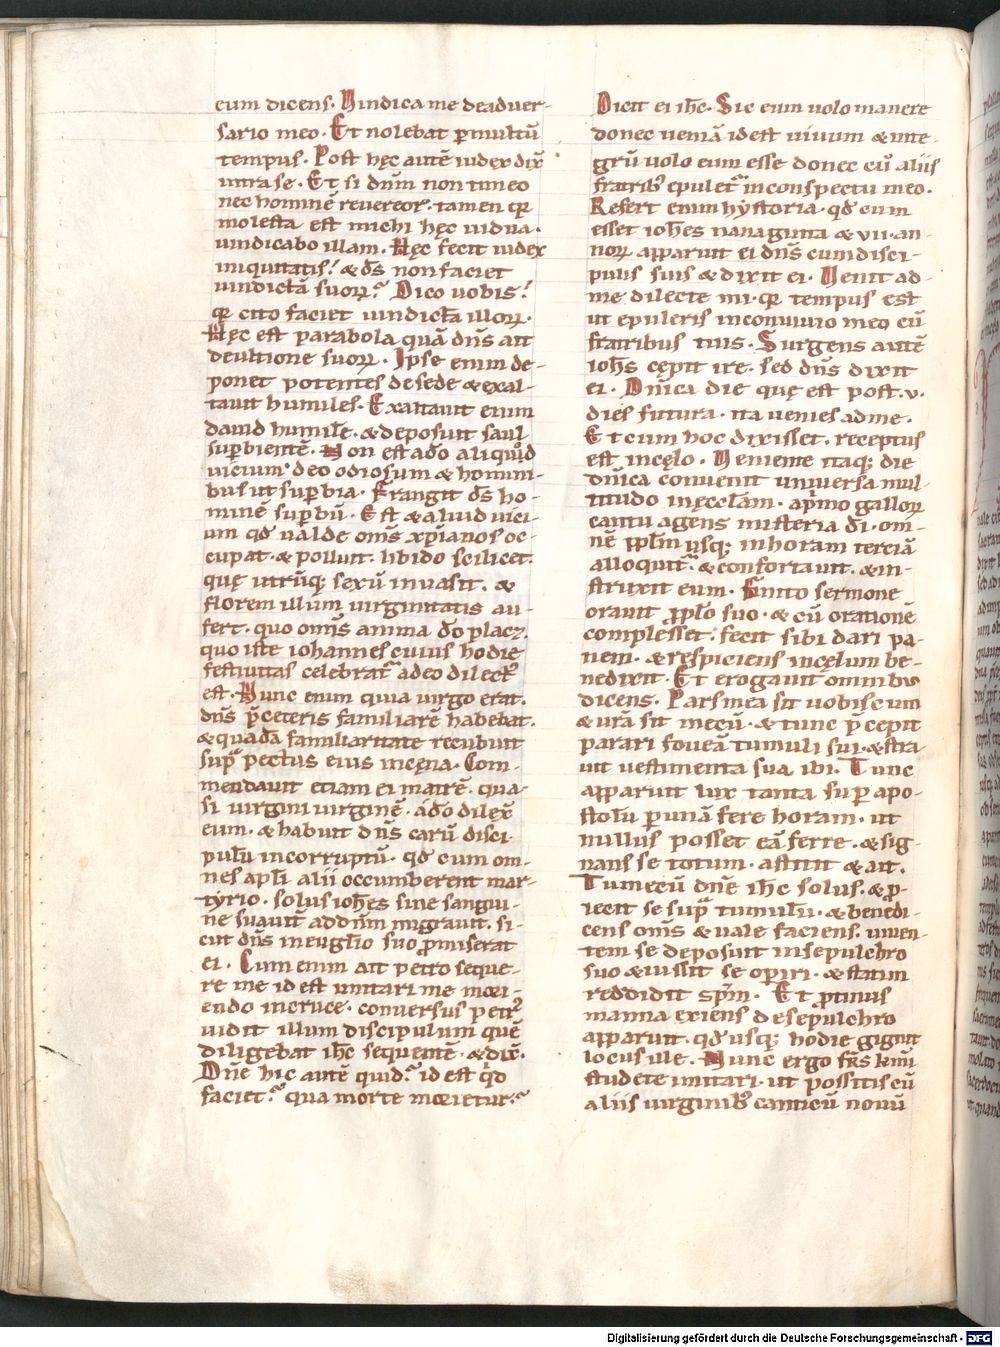 eum dicens. Vindica me deaduer-
sario meo. Et nolebat p̱ multū
tempus. Post hęc autē iudex dix̄
intra se. Et si dn̄m non timeo
nec hominē revereor. tamen qr̄
molesta est michi hęc uidua.
uindicabo illam. Hęc fecit iudex
iniquitatis! & ds̄ non faciet
uindictā suoꝝ? Dico uobis!
qr̄ cito faciet uindictā illoꝝ.
Hęc est parabola quā dn̄s ait
deultione suoꝝ. Ipse enim de-
ponet potentes desede & exal-
tauit humiles. Exaltauit enim
dauid humilē. & deposuit saul
suꝑbientē. Non est ado aliquod
uicium deo odiosum & homini-
bus ut suꝑbia. Frangit ds̄ ho-
minē suꝑbū. Est & aliud uici-
um qd̄ ualde oms̄ xp̄ianos oc-
cupat. & polluit. libido scilicet.
quę utrūq; sexū inuasit. &
florem illum uirginitatis au-
fert. quo omīs anima do placꝫ.
quo iste iohannes cuius hodie
festiuitas celebrat᷑ adeo dilect᷒
est. Nunc enim quia uirgo erat.
dn̄s p̄ceteris familiarē habebat.
& quadā familiaritate recubuit
sup̄ pectus eius incęna. Com-
mendauit etiam ei matrē. qua-
si uirgini uirginē. ado dilex̄
eum. & habuit dn̄s carū disci-
pulū incorruptū. qd̄ cum om-
nes apl̄i alii occumberent mar-
tyrio. solus ioh̄es sine sangui-
ne suauit̄ addn̄m migrauit. si-
cut dn̄s ineuglīo suo ꝓmiserat
ei. Cum enim ait petro seque-
re me id est imitari me mori-
endo incruce. conuersus petr᷒
uidit illum discipulum quē
diligebat ih̄c sequentē. & dix̄.
Dn̄e hic autē quid? id est qd̄
faciet? qua morte morietur?
Dicit ei ih̄c. Sic eum uolo manere
donec ueniā id est uiuum & inte-
grū uolo eum esse donec cū aliis
fratrib᷒ epulet᷑ inconspectu meo.
Refert enim hystoria. qd̄ cum
esset ioh̄es nanaginta & vii. an-
noꝝ apparuit ei dn̄s cumdisci-
pulis suis & dixit ei. Venit ad-
me dilecte mi. qr̄ tempus est
ut epuleris inconuiuio meo cū
fratribus tuis. Surgens autē
ioh̄s cępit ire. sed dn̄s dixit
ei. Dn̄ica die quę est post .v.
dies futura. ita uenies ad me.
Et cum hoc dixisset. receptus
est incęlo. Veniente itaq; die
dn̄ica conuenit uniuersa mul-
titudo inęcclam̄. ap̄mo galloꝝ
cantu agens misteria di. om-
nē pp̄lm usq; inhoram terciā
alloquit᷑. & confortauit. & in-
struxit eum. Finito sermone
orauit pp̄lo suo. & cū orationē
complesset. fecit sibi dari pa-
nem. & respiciens incęlum be-
nedixit. Et erogauit omnibus
dicens. Pars mea sit uobiscum
& urā sit mecū. & tunc p̄cepit
parari foueā tumuli sui. & stra-
uit uestimenta sua ibi. Tunc
apparuit lux tanta suꝑ apo-
stolū ꝑ unā fere horam. ut
nullus posset eā ferre. & sig-
nans se totum. astitit & ait.
Tu mecū dn̄e ih̄c solus. & ꝓ-
iecit se sup̄ tumulū. & benedi-
cens oms̄ & uale faciens. uiuen-
tem se deposuit insepulchro
suo & iussit se oꝑiri. & statim
reddidit spm̄. Et ꝓtinus
manna exiens desepulchro
apparuit. qd̄ usq; hodie gignit
locus ille. Nunc ergo frs̄ kmī
studete imitari. ut possitis cū
aliis uirginib᷒ canticū nouū
Digitalisierung gefördert durch die Deutsche Forschungsgemeinschaft - DFG